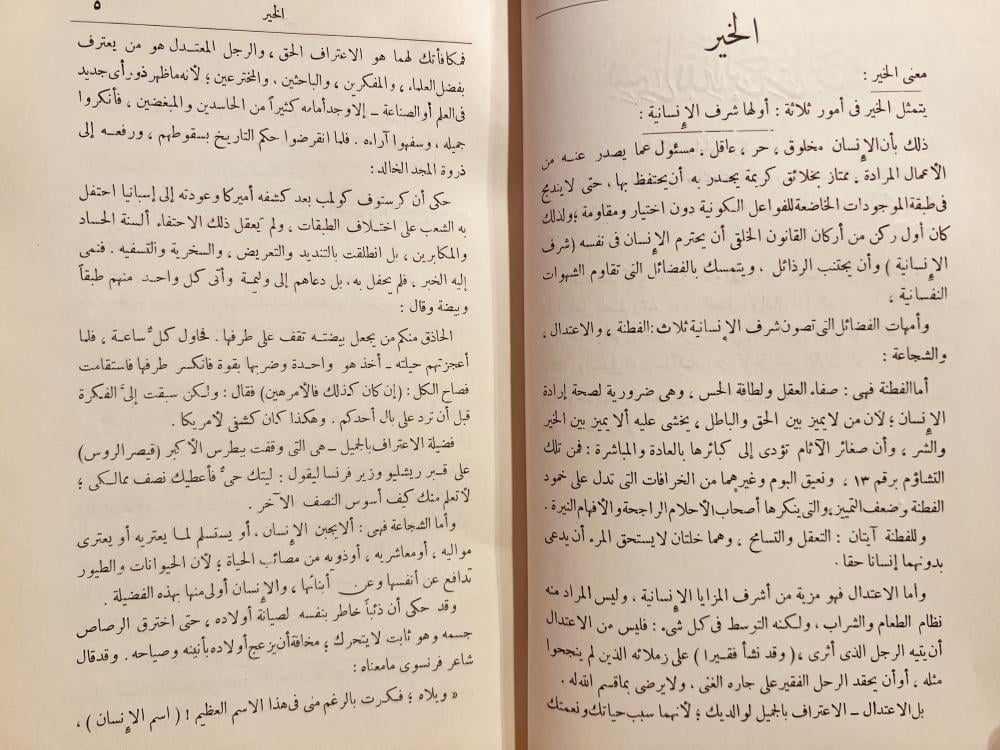 الخير
معنى الخير :
يتمثل الخير فى أمور ثلاثة : أولها شرف الإنسانية :
ذلك بأن الإنسان مخلوق ، حر ، عاقل . مسئول عما يصدر عنه من
الأعمال المرادة . ممتاز بخلائق كريمة يجدر به أن يحتفظ بها ، حتى لا يندمج
فى طبقة الموجودات الخاضعة للفواعل الكونية دون اختيار ومقاومة ؛ ولذلك
كان أول ركن من أركان القانون الخلقى أن يحترم الإنسان فى نفسه (شرف
الإنسانية ) وأن يجتنب الرذائل ، ويتمسك بالفضائل التى تقاوم الشهوات
النفسانية .
وأمهات الفضائل التى تصون شرف الإنسانية ثلاث : الفطنة ، والاعتدال ،
والشجاعة :
أما الفطنة فهى : صفاء العقل ولطافة الحس ، وهى ضرورية لصحة إرادة
الإنسان ؛ لأن من لا يميز بين الحق والباطل ، يخشى عليه ألا يميز بين الخير
والشر ، وأن صغائر الآثام تؤدى إلى كبائرها بالعادة والمباشرة : فمن تلك
التشاؤم برقم ١٣ ، ونعيق البوم وغيرهما من الخرافات التى تدل على خمود
الفطنة وضعف التمييز ، والتى ينكرها أصحاب الأحلام الراجحة والأفهام النيرة .
وللفطنة آيتان : التعقل والتسامح ، وهما خلتان لا يستحق المرء أن يدعى
بدونهما إنسانا حقا .
وأما الاعتدال فهو مزية من أشرف المزايا الإنسانية ، وليس المراد منه
نظام الطعام والشراب ، ولكنه التوسط فى كل شىء : فليس من الاعتدال
أن يتيه الرجل الذى أثرى ، ( وقد نشأ فقيرا ) على زملائه الذين لم ينجحوا
مثله ، أو أن يحقد الرجل الفقير على جاره الغنى . ولا يرضى بما قسم الله له .
بل الاعتدال ــ الاعتراف بالجميل لوالديك ؛ لأنهما سبب حياتك ونعمتك
الخير
٥
فمكافأتك لهما هو الاعتراف الحق ، والرجل المعتدل هو من يعترف
بفضل العلماء ، والمفكرين ، والباحثين . والمخترعين ؛ لأنه ما ظهر ذو رأى جديد
فى العلم أو الصناعة ــ إلا وجد أمامه كثيراً من الحاسدين والمبغضين ، فأنكروا
جميله ، وسفهوا آراءه . فلما انقرضوا حكم التاريخ بسقوطهم ، ورفعه إلى
ذروة المجد الخالد :
حكى أن كرستوف كولمب بعد كشفه أميركا وعودته إلى إسبانيا احتفل
به الشعب على اختلاف الطبقات ، ولم يَعقل ذلك الاحتفاء ألسنة الحساد
والمكابرين ، بل انطلقت بالتنديد والتعريض ، والسخرية والتسفيه . فنمى
إليه الخبر ، فلم يحفل به ، بل دعاهم إلى وليمة وأتى كل واحد منهم طبقاً
وبيضة وقال :
الحاذق منكم من يجعل بيضته تقف على طرفها . فحاول كلٌّ ساعة ، فلما
أعجزتهم حيلته ــ أخذ هو واحدة وضربها بقوة فانكسر طرفها فاستقامت
فصاح الكل : (إن كان كذلك فالأمر هين) فقال : ولكن سبقت إلىَّ الفكرة
قبل أن ترد على بال أحدكم . وهكذا كان كشفى لأمريكا .
فضيلة الاعتراف بالجميل ــ هى التى وقفت ببطرس الأكبر (قيصر الروس)
على قبر ريشليو وزير فرنسا ليقول : ليتك حىٌّ فأعطيك نصف ممالكى ؛
لأتعلم منك كيف أسوس النصف الآخر .
وأما الشجاعة فهى : ألا يجبن الإنسان ، أو يستسلم لما يعتريه أو يعترى
مواليه ، أو معاشريه ، أو ذويه من مصائب الحياة ؛ لأن الحيوانات والطيور
تدافع عن أنفسها وعن أبنائها ، والإنسان أولى منها بهذه الفضيلة .
وقد حكى أن ذئباً خاطر بنفسه لصيانة أولاده ، حتى اخترق الرصاص
جسمه وهو ثابت لا يتحرك ؛ مخافة أن يزعج أولاده بأنينه وصياحه . وقد قال
شاعر فرنسوى ما معناه :
« ويلاه ؛ فكرت بالرغم منى فى هذا الاسم العظيم ! ( اسم الإنسان ) ،